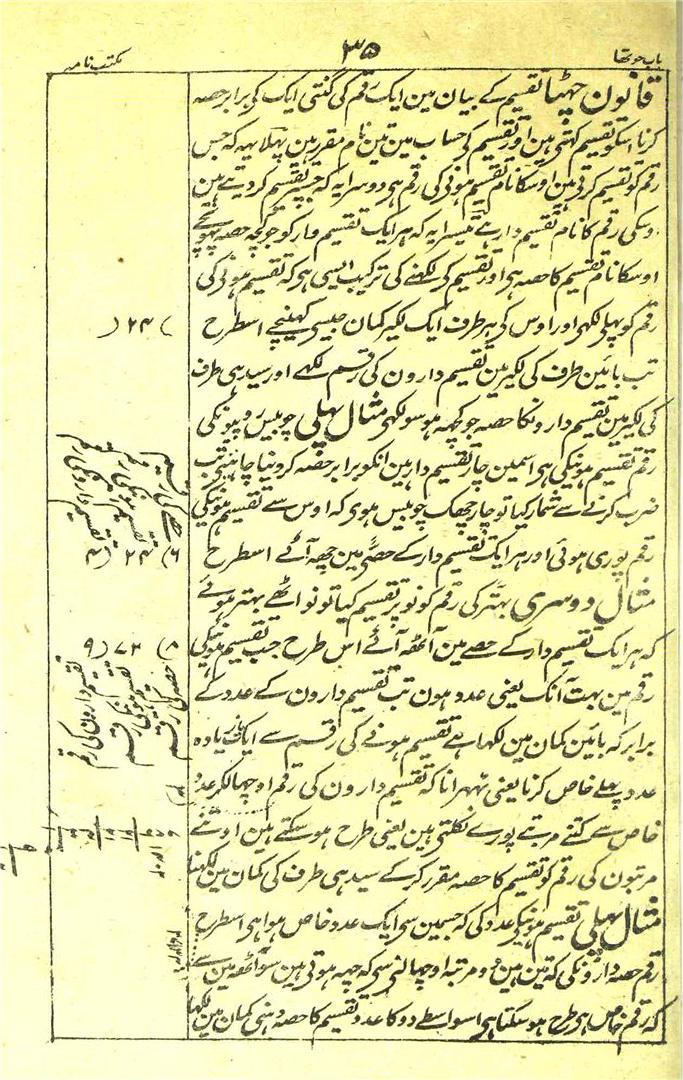 باب چوتھا
۳۵
مکتب نامہ
قانون چھٹا تقسیم کے بیان مین ایک رقم کی گنتی ایک کی برابر حصہ
کرنا اسکو تقسیم کہتی ہین اور تقسیم کی حساب مین تین نام مقرر ہین پہلا یہہ کہ جس
رقم کو تقسیم کرتی ہین اوسکا نام تقسیم ہونی کی رقم ہی دوسرا یہ کہ جسپر تقسیم کر دیتے ہین
وسکی رقم کا نام تقسیم دار ہے تیسرا یہ کہ ہر ایک تقسیم وار کو جو کچہ حصہ پہونچے
اوسکا نام تقسیم کا حصہ ہی اور تقسیم کی لکھنے کی ترکیب ایسی ہی کہ تقسیم ہونی کی
رقم کو پہلی لکھی اور اوس کی ہر طرف ایک لکیر کمان جیسی کھینچے اسطرح
) ۲۴ (
تب بائین طرف کی لکیر مین تقسیم دارون کی رقم لکھے اور سیدہی طرف
کی لکیر مین تقسیم دارونکا حصہ جو کچھہ ہو سو لکھی مثال پہلی چوبیس روپیونکی
رقم تقسیم ہونیکی ہی اسمین چار تقسیم دار ہین انکو برابر حصہ کر دینا چاہئی تب
ضرب کرنے سے شمار کیا تو چار چھک چوبیس ہوی کہ اوس سے تقسیم ہونیکی
رقم پوری ہوئی اور ہر ایک تقسیم دار کے حصی مین چھہ آئے اسطرح
۶) ۲۴ (۴
مثال دوسری بہتر کی رقم کو نو پر تقسیم کیا تو نو اٹھے بہتر ہوئے
کہ ہر ایک تقسیم دار کے حصے مین آٹھہ آئے اس طرح جب تقسیم ہونیکی
۸) ۷۲ (۹
رقم مین بہت آنک یعنی عدد ہون تب تقسیم دارون کے عدد کے
حصہ کی رقم
تقسیم ہونیکی رقم
تقسیم دارون کی رقم
برابر کہ بائین کمان مین لکھا ہے تقسیم ہونے کی رقم سے ایک یا زیادہ
عدد پہلے خاص کرنا یعنی ٹھہرانا کہ تقسیم دارون کی رقم اوچھا لکر عدد
خاص سے کتنے مرتبے پورے نکلتی ہین یعنی طرح ہو سکتے ہین اوتنے
مرتبون کی رقم کو تقسیم کا حصہ مقرر کر کے سیدہی طرف کی کمان مین لکھنا
مثال پہلی تقسیم ہونیکی عدد کی کہ جسمین سی ایک عدد خاص ہوا ہی اسطرح
رقم حصہ دارونکی کہ تین ہین دو مرتبہ اوچھالنی سی کہ چھہ ہوتی ہین سو آٹھہ مین سے
کہ رقم خاص ہی طرح ہو سکتا ہی اسواسطے دو کا عدد تقسیم کا حصہ دہنی کمان مین لکھا